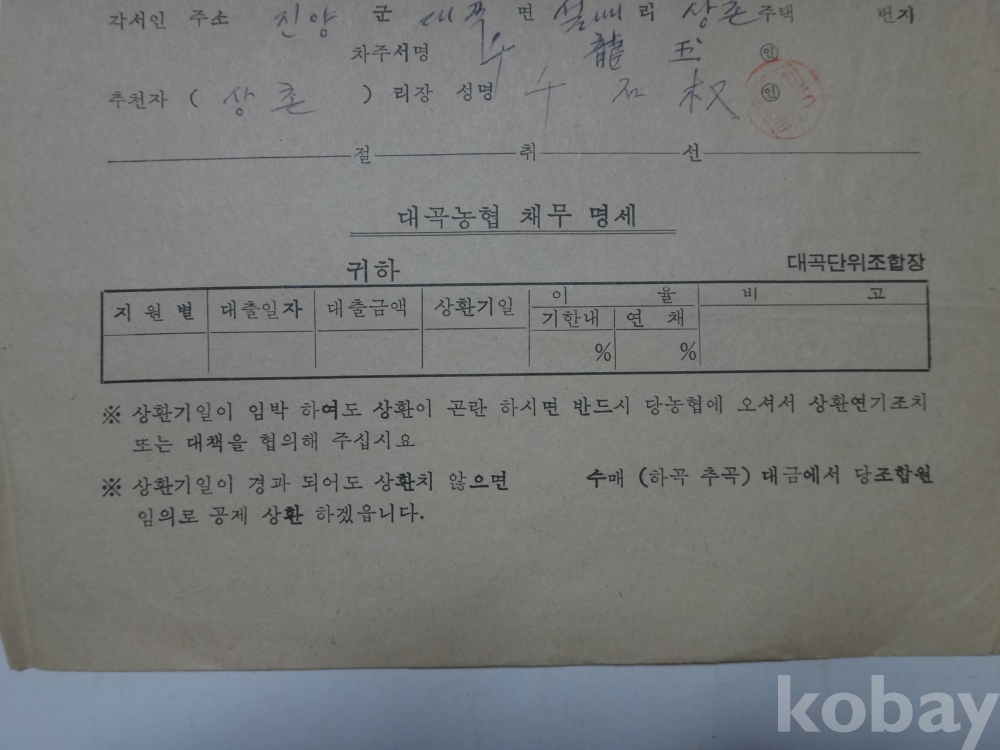 각서인 주소 진양 군 대곡 면 설매 리 상촌 주택 번지
차주서명 龍 玉 ㊞
추천자 ( 상촌 ) 리장 성명 石 权 ㊞
절 취 선
대곡농협 채무 명세
귀하 대곡단위조합장
지 원 별 대출일자 대출금액 상환기일 이 율 비 고
기한내 연 채
% %
※ 상환기일이 임박 하여도 상환이 곤란 하시면 반드시 당농협에 오셔서 상환연기조치
또는 대책을 협의해 주십시요
※ 상환기일이 경과 되어도 상환치 않으면 수매 (하곡 추곡) 대금에서 당조합원
임의로 공제 상환 하겠읍니다.
kobay